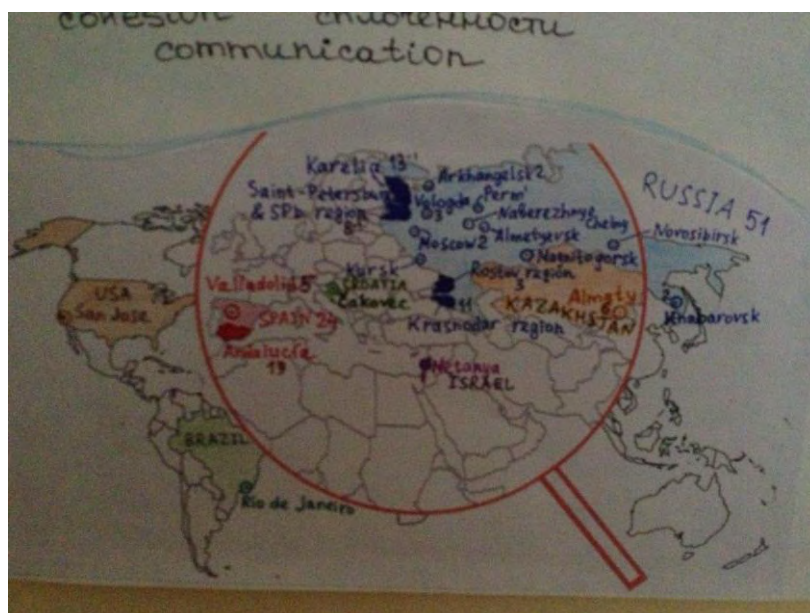 cohesion сплоченности
communication
Karelia 13
Arkhangelsk 2
Saint-Petersburg
& SPb region
8
Vologda
3
Perm'
Naberezhnye Chelny
Almetyevsk
Moscow 2
RUSSIA 51
Novosibirsk
Magnitogorsk
Kursk
Rostov region
3
11
Krasnodar region
Valladolid 5
CROATIA
Čakovec
SPAIN 24
Andalucía
19
Almaty
6
KAZAKHSTAN
2
Khabarovsk
Netanya
ISRAEL
USA
San Jose
BRAZIL
Rio de Janeiro